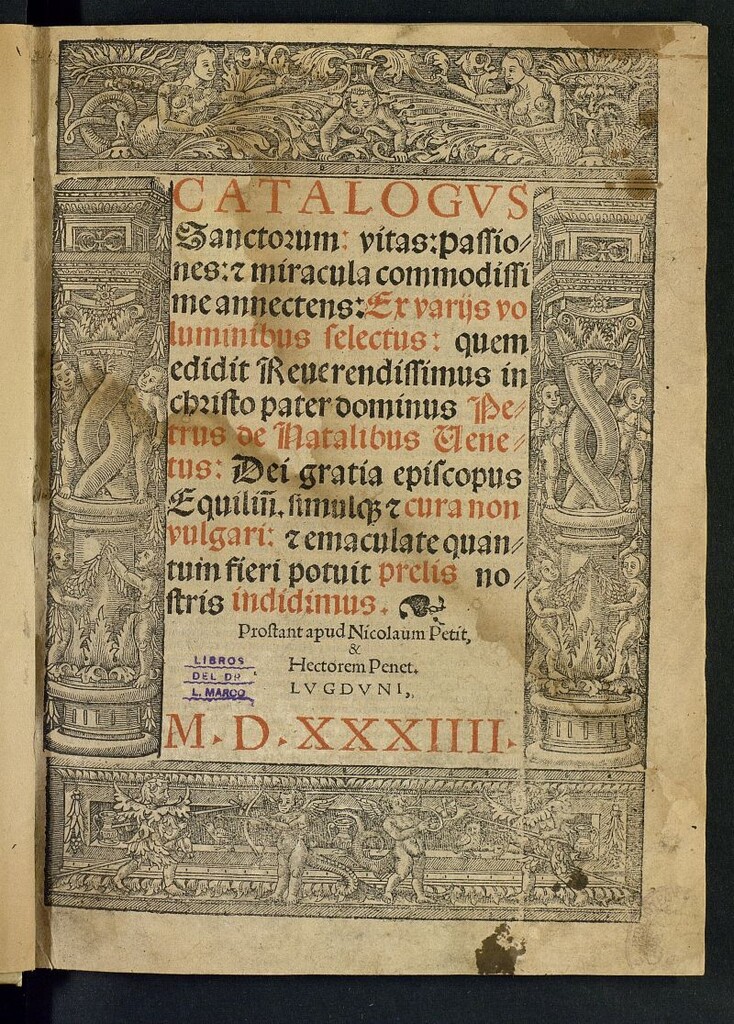 CATALOGVS
Sanctorum: vitas: passio⸗
nes: ⁊ miracula commodissi
me annectens: Ex varijs vo
luminibus selectus: quem
edidit Reuerendissimus in
christo pater dominus Pe⸗
trus de Natalibus Uene⸗
tus: Dei gratia episcopus
Equilin̄. simulqꝫ ⁊ cura non
vulgari: ⁊ emaculate quan⸗
tum fieri potuit prelis no⸗
stris indidimus.
Prostant apud Nicolaum Petit,
&
Hectorem Penet.
LVGDVNI,
M. D. XXXIIII.
LIBROS
DEL DR.
L. MARCO